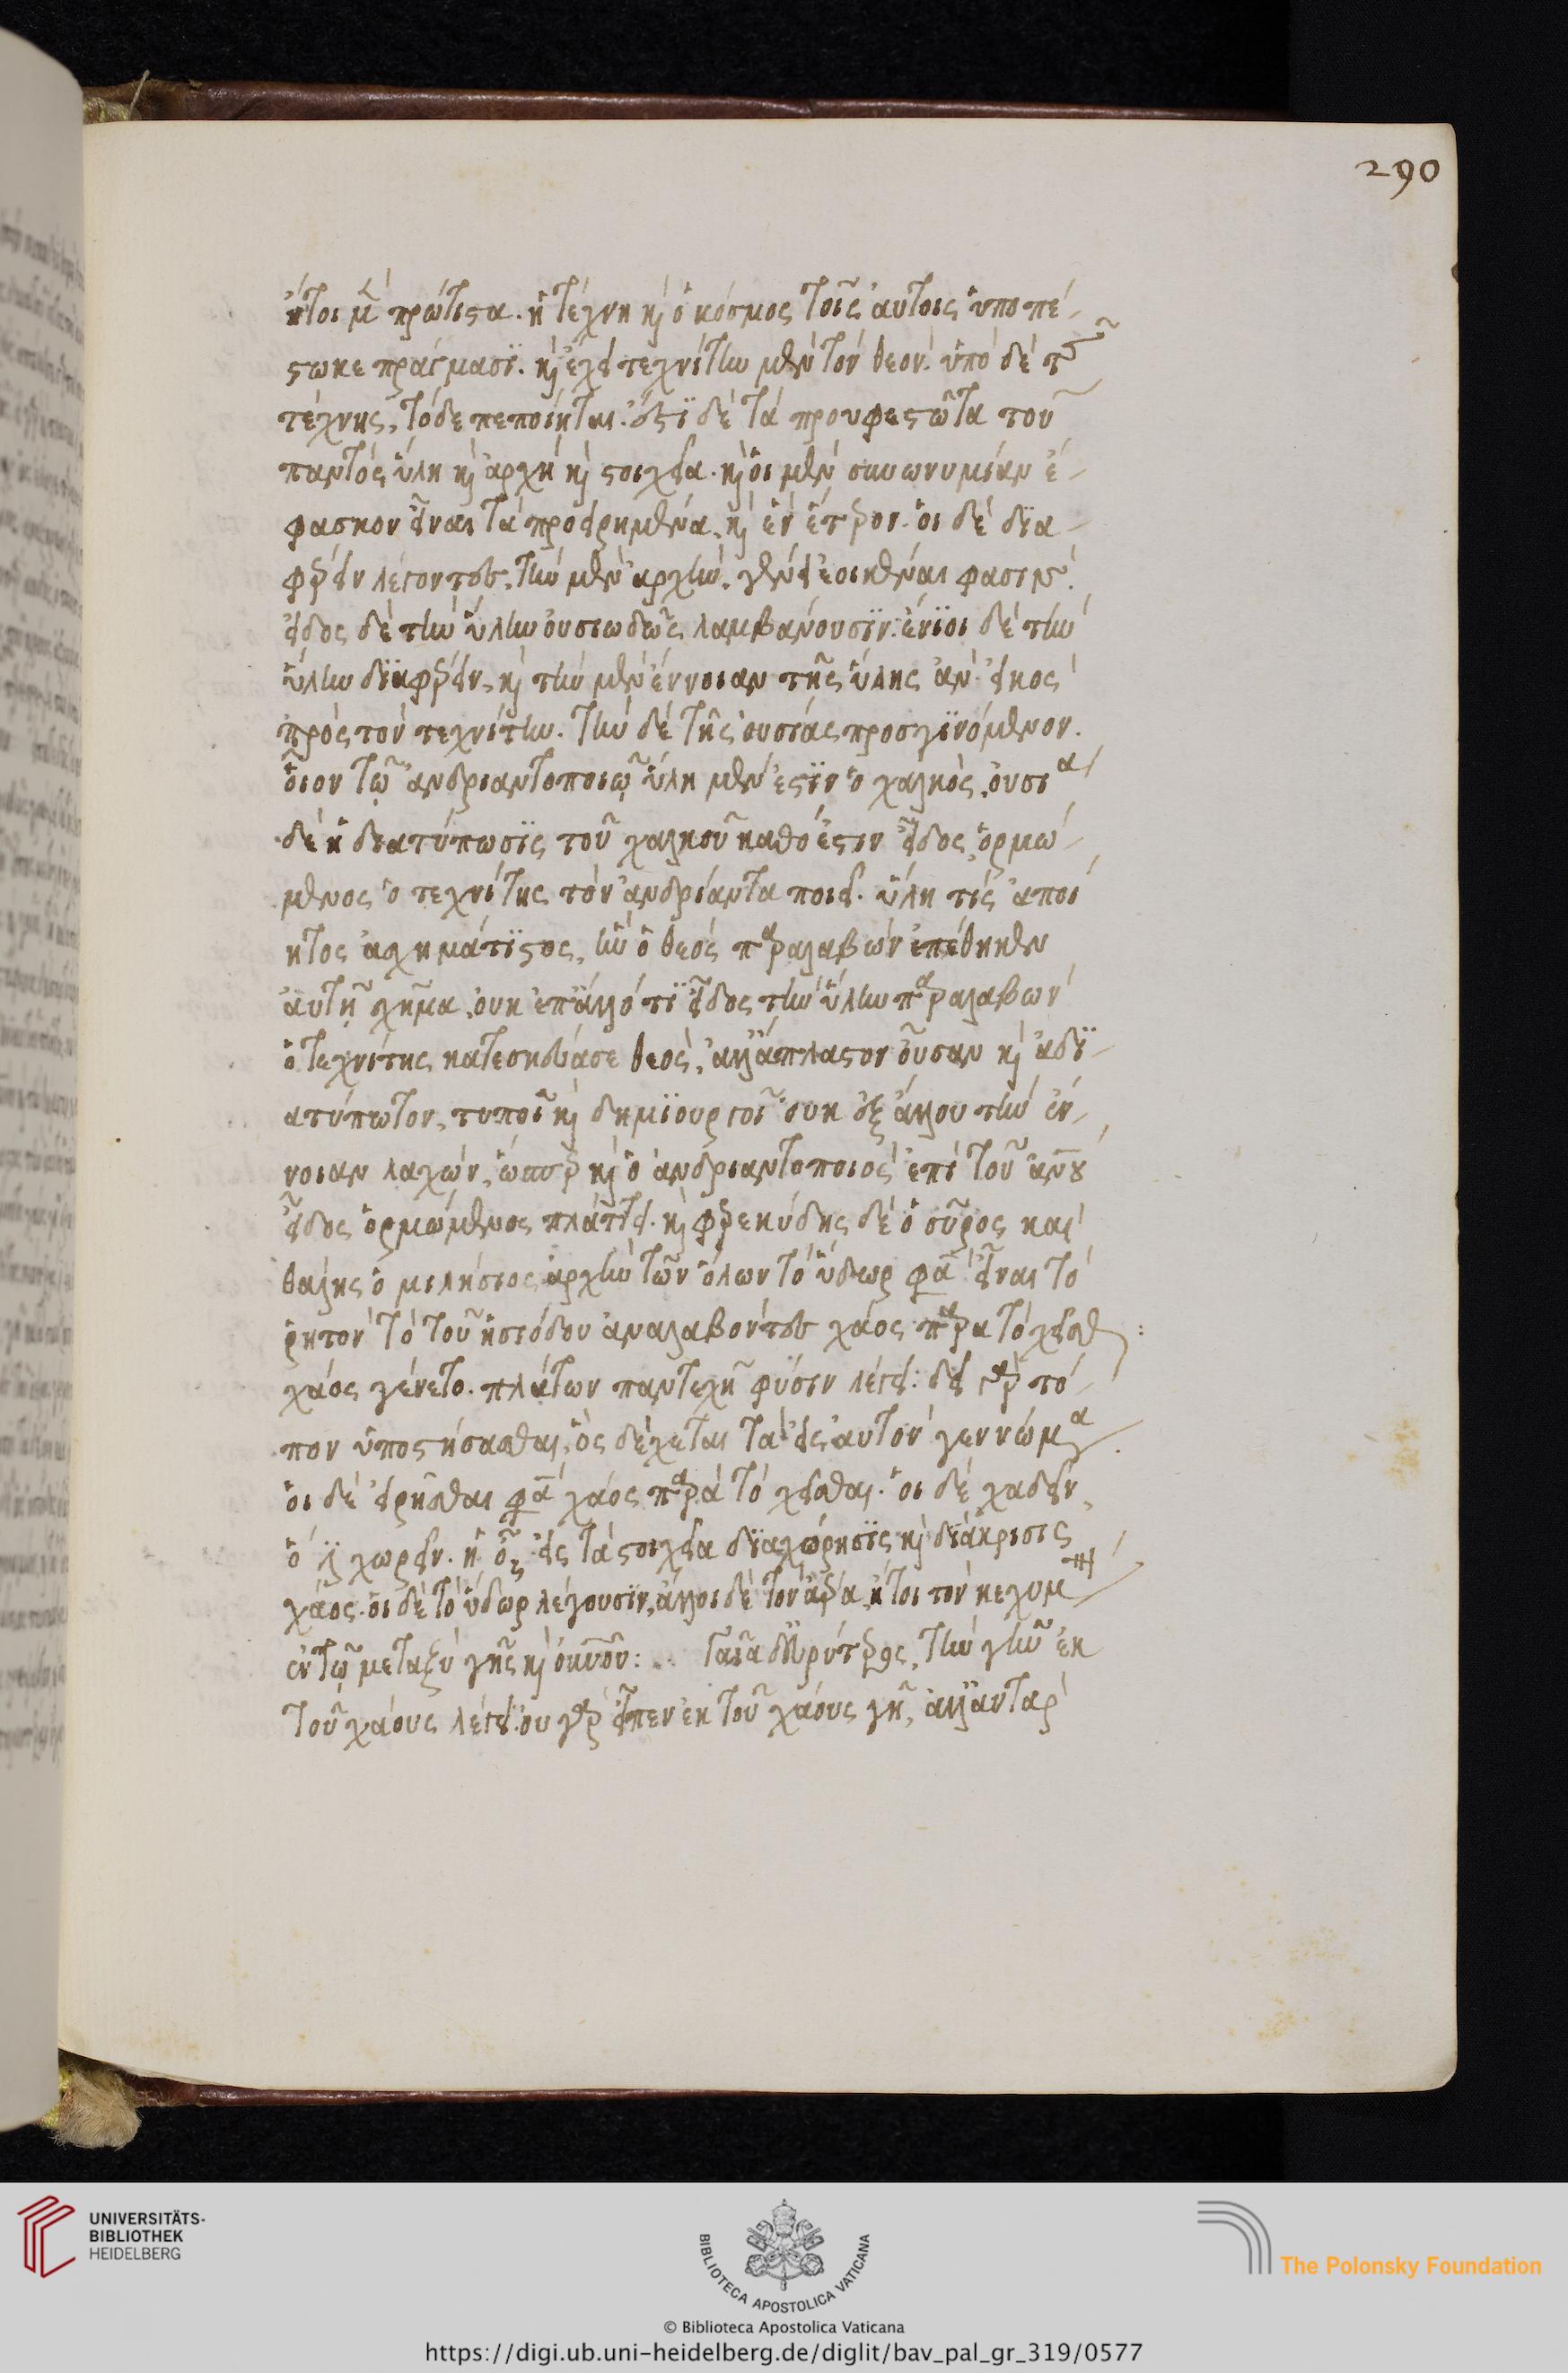 290
ἤτοι μὲν πρώτιστα. ἡ τέχνη καὶ ὁ κόσμος τοῖς αὐτοῖς ὑποπέ-
πτωκε πράγμασϊ. καὶ ἔχει τεχνίτην μὲν τὸν θεόν. ὑπὸ δὲ τῆς
τέχνης, τόδε πεποίηται. ἔστϊ δὲ τὰ προυφεστῶτα τοῦ
παντὸς ὕλη καὶ ἀρχὴ καὶ στοιχεῖα. καὶ οἱ μὲν συνωνυμίαν ἔ-
φασκον εἶναι τὰ προειρημένα, καὶ ἓν ἕτερον. οἱ δὲ δϊα-
φέρειν λέγοντες, τὴν μὲν ἀρχὴν, γένει ἐοικέναι φασιν.
εἶδος δὲ τὴν ὕλην οὐσιωδῶς λαμβάνουσϊν. ἔνϊοι δὲ τὴν
ὕλην δϊαφέρειν, καὶ τὴν μὲν ἔννοιαν τῆς ὕλης ἀν εἰκὸς
πρὸς τὸν τεχνίτην. τὴν δὲ τῆς οὐσίας προσγϊνόμενον.
οἷον τῷ ἀνδριαντοποιῷ ὕλη μὲν ἐστϊν ὁ χαλκὸς, οὐσία
δὲ ἡ διατύπωσϊς τοῦ χαλκοῦ καθό ἐστιν εἶδος, ὁρμώ-
μενος ὁ τεχνίτης τὸν ἀνδριάντα ποιεῖ. ὕλη τίς ἀποί
ητος ἀσχημάτϊστος, ἣν ὁ θεὸς παραλαβὼν ἐπέθηκεν
αὐτῇ σχῆμα, οὐκ ἐπ' ἄλλό τϊ εἶδος τὴν ὕλην παραλαβὼν
ὁ τεχνίτης κατεσκεύασε θεὸς, ἀλλ' ἄπλαστον οὖσαν καὶ ἀδϊ-
ατύπωτον, τυποῖ καὶ δημϊουργοῖ οὐκ ἐξ ἄλλου τὴν ἔν-
νοιαν λαχών, ὥσπερ καὶ ὁ ἀνδριαντοποιὸς ἐπὶ τοῦ ἀνου
εἶδος ὁρμώμενος πλάττει. καὶ φερεκύδης δὲ ὁ σῦρος καὶ
θαλῆς ὁ μιλήσιος ἀρχὴν τῶν ὅλων τὸ ὕδωρ φα εἶναι τὸ
ῥητὸν τὸ τοῦ ἡσιόδου ἀναλαβόντες χάος παρα τὸ χεῖσθαι:
χάος γένετο. πλάτων πανδεχῆ φύσιν λέγει: δεῖ γὰρ τό-
πον ὑποστήσασθαι, ὃς δέχεται τὰ εἰς αὐτὸν γεννώμενα.
οἱ δὲ εἰρῆσθαι φα χάος παρὰ τὸ χεῖσθαι. οἱ δὲ χαδεῖν
ὅ ἐστι χωρεῖν. ἡ οὖν εἰς τὰ στοιχεῖα δϊαχώρησϊς καὶ δϊάκρισις
χάος. οἱ δὲ τὸ ὕδωρ λέγουσϊν, ἄλλοι δὲ τὸν ἀέρα, ἤτοι τὸν κεχυμένον
ἐν τῷ μεταξὺ γῆς καὶ οὐνοῦ: .. Γαῖα δ' εὐρύστερνος, τὴν γῆν ἐκ
τοῦ χάους λέγει. οὐ γὰρ εἶπεν ἐκ τοῦ χάους γῆ, ἀλλ' αὐτὰρ
UNIVERSITÄTS-
BIBLIOTHEK
HEIDELBERG
BIBLIOTECA APOSTOLICA VATICANA
The Polonsky Foundation
© Biblioteca Apostolica Vaticana
https://digi.ub.uni-heidelberg.de/diglit/bav_pal_gr_319/0577